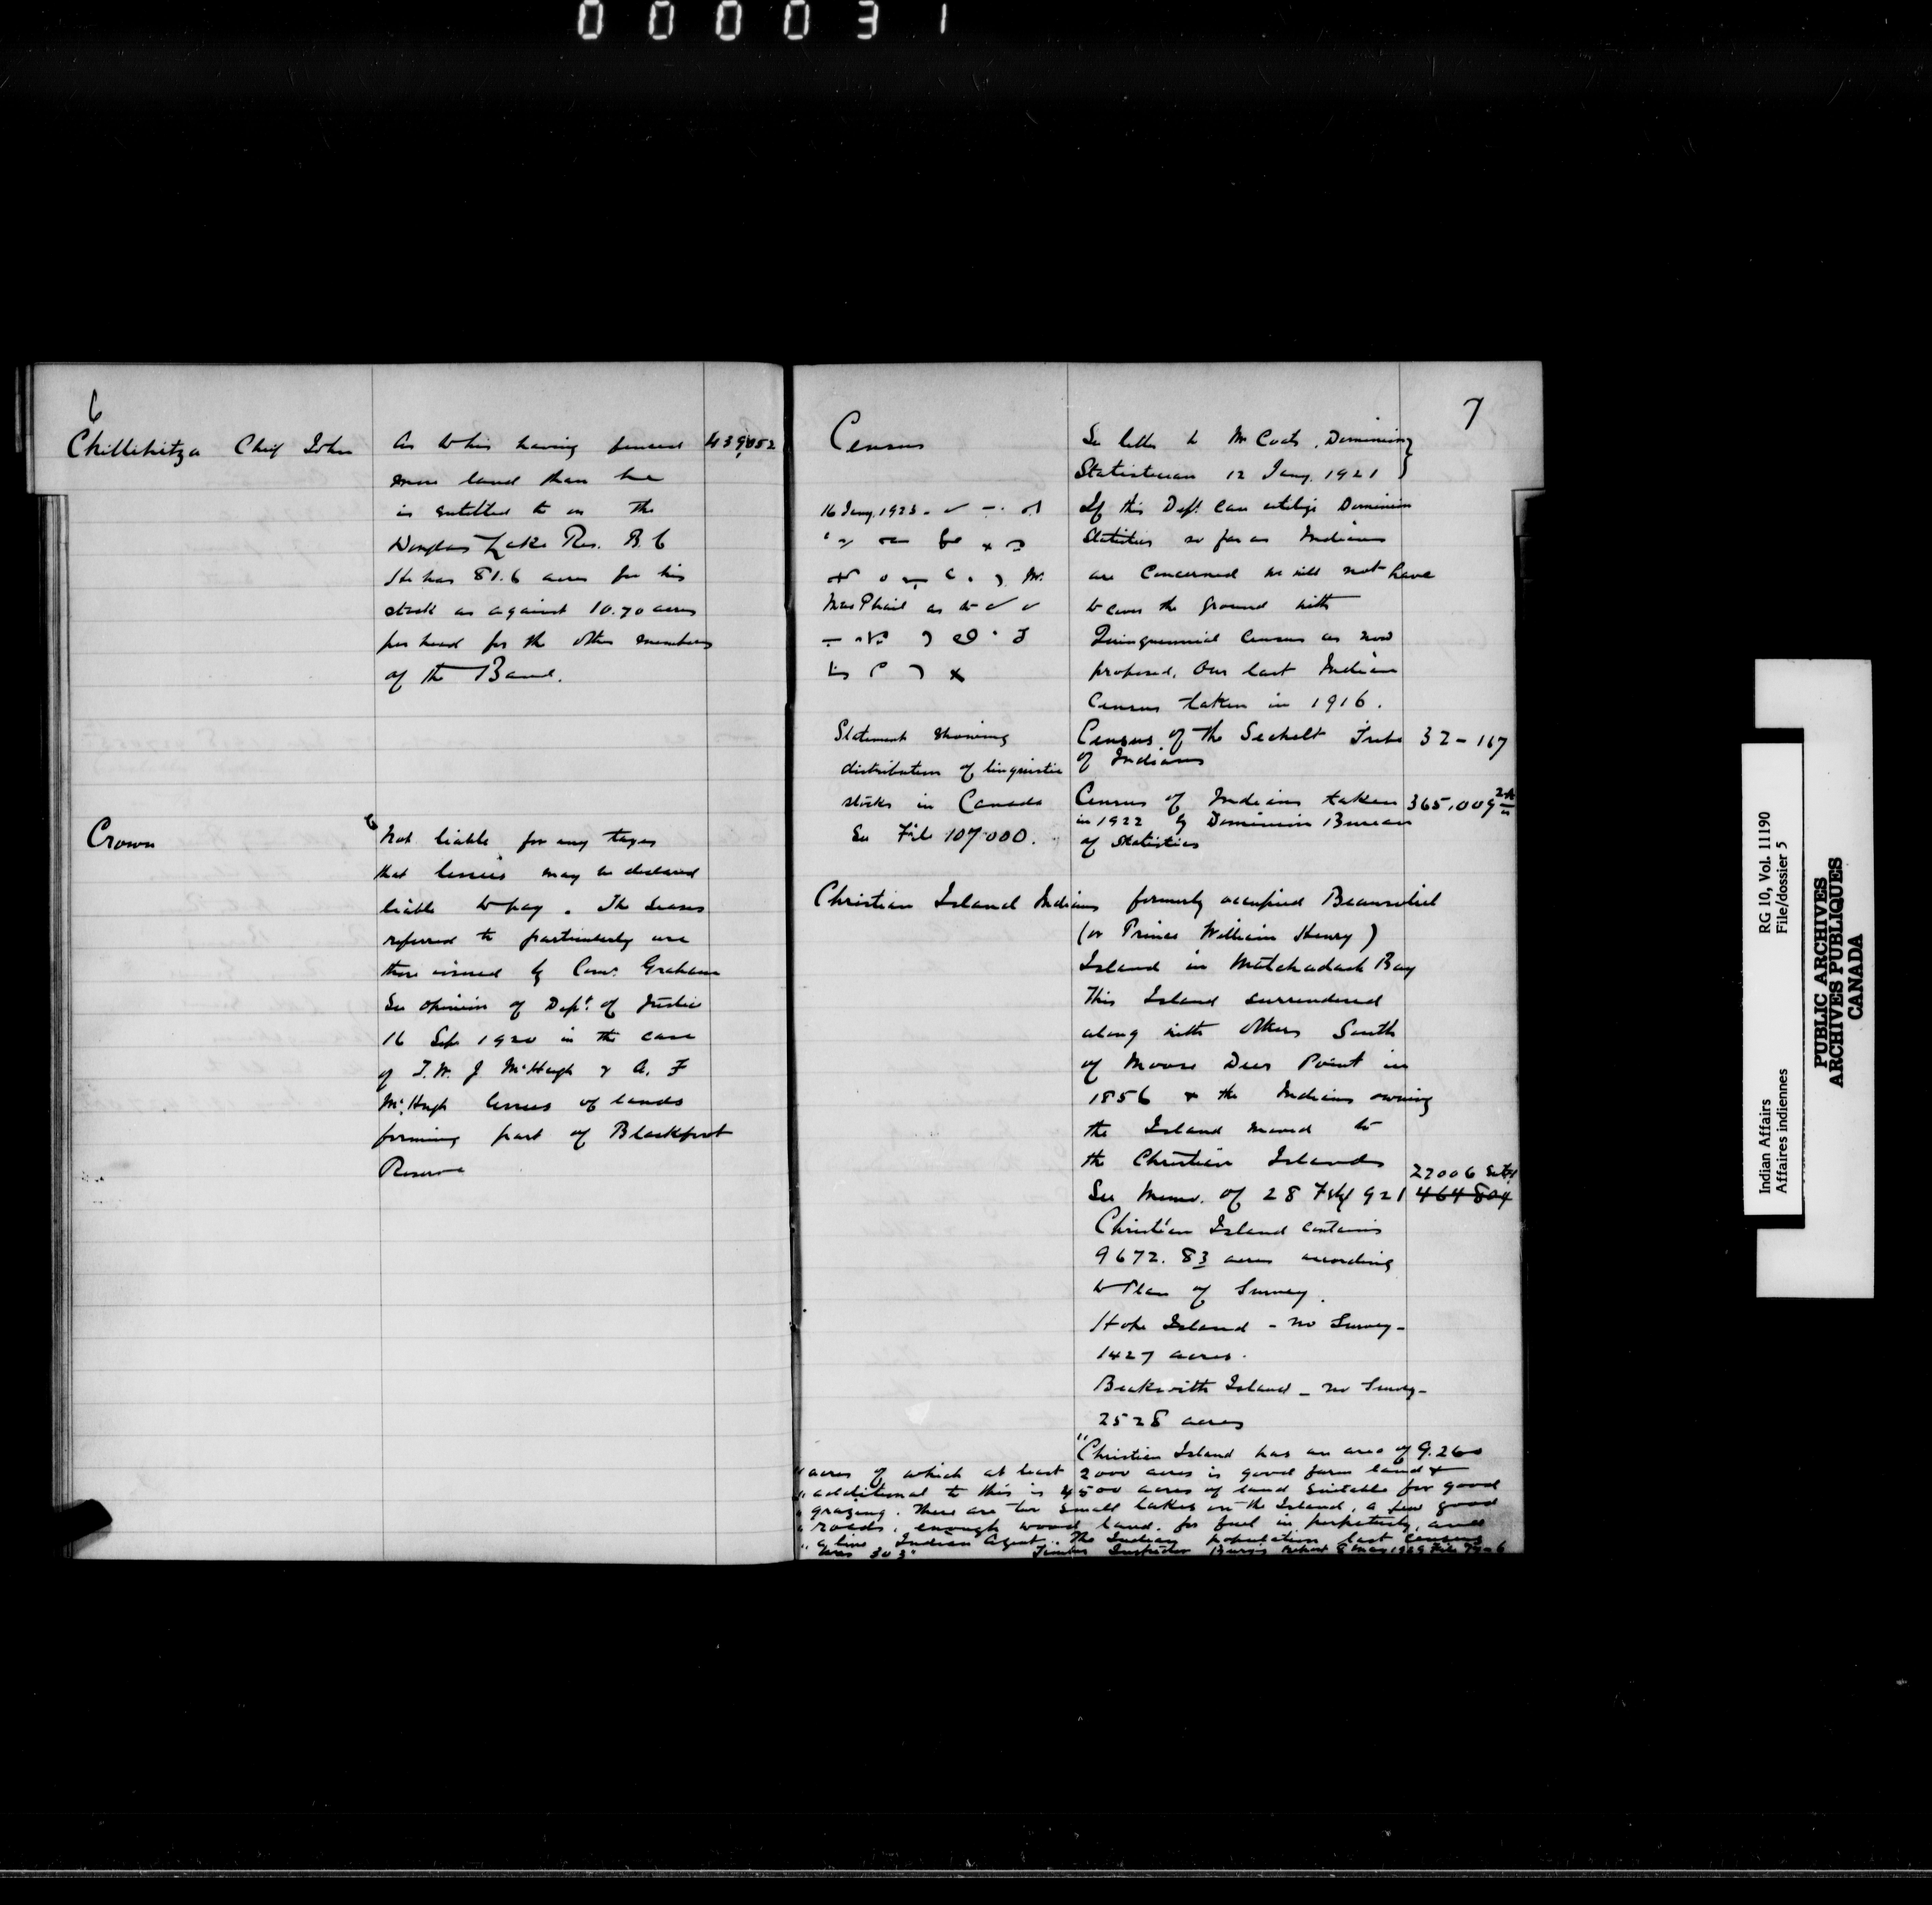 000031
6
Chillihitza Chief John
As to his having fenced 439,052
more land than he
is entitled to on the
Douglas Lake Res. B.C
He has 81.6 acres for his
stock as against 10.70 acres
per head for the other members
of the Band.
Crown
Not liable for any taxes
that lessees may be declared
liable to pay. The leases
referred to particularly are
those issued by Comr. Graham
See opinion of Dept. of Justice
16 Sep 1920 in the case
of T. W. J McHugh & A. F
McHugh lessees of lands
forming part of Blackfoot
Reserve
7
Census
16 Jany. 1923.
Mr.
MacPhail as to
Statement showing
distribution of linguistic
stocks in Canada
See File 107.000.
See letter to Mr Coats, Dominion
Statistician 12 Jany. 1921
If this Dept. can utilize Dominion
Statistics so far as Indians
are concerned we will not have
to cover the ground with
Quinquennial Census as now
proposed. Our last Indian
Census taken in 1916.
Census of the Sechelt Tribe 32-167
of Indians
Census of Indians taken 365,009
in 1922 by Dominion Bureau
of Statistics
Christian Island Indians formerly occupied Beausoliel
(or Prince William Henry)
Island in Matchadash Bay
This Island surrendered
along with others South
of Moose Deer Point in
1856 & the Indians owning
the Island moved to
the Christian Islands
22006
See Memo. of 28 1921 464804
Christian Island contains
9672.83 acres according
to Plan of Survey.
Hope Island - no Survey -
1427 acres.
Beckwith Island - no Survey -
2528 acres
"Christian Island has an area of 9.260
"acres of which at least 2000 acres is good farm land &
"additional to this is 4500 acres of land suitable for good
"grazing. There are two small lakes on the Island, a few good
"roads, enough wood land for fuel in perpetuity, and
"a live Indian Agent. The Indian population last Census
"was 303" Timber Inspector report 8 May 1929 File
Indian Affairs RG 10, Vol. 11190
Affaires indiennes File/dossier 5
PUBLIC ARCHIVES
ARCHIVES PUBLIQUES
CANADA